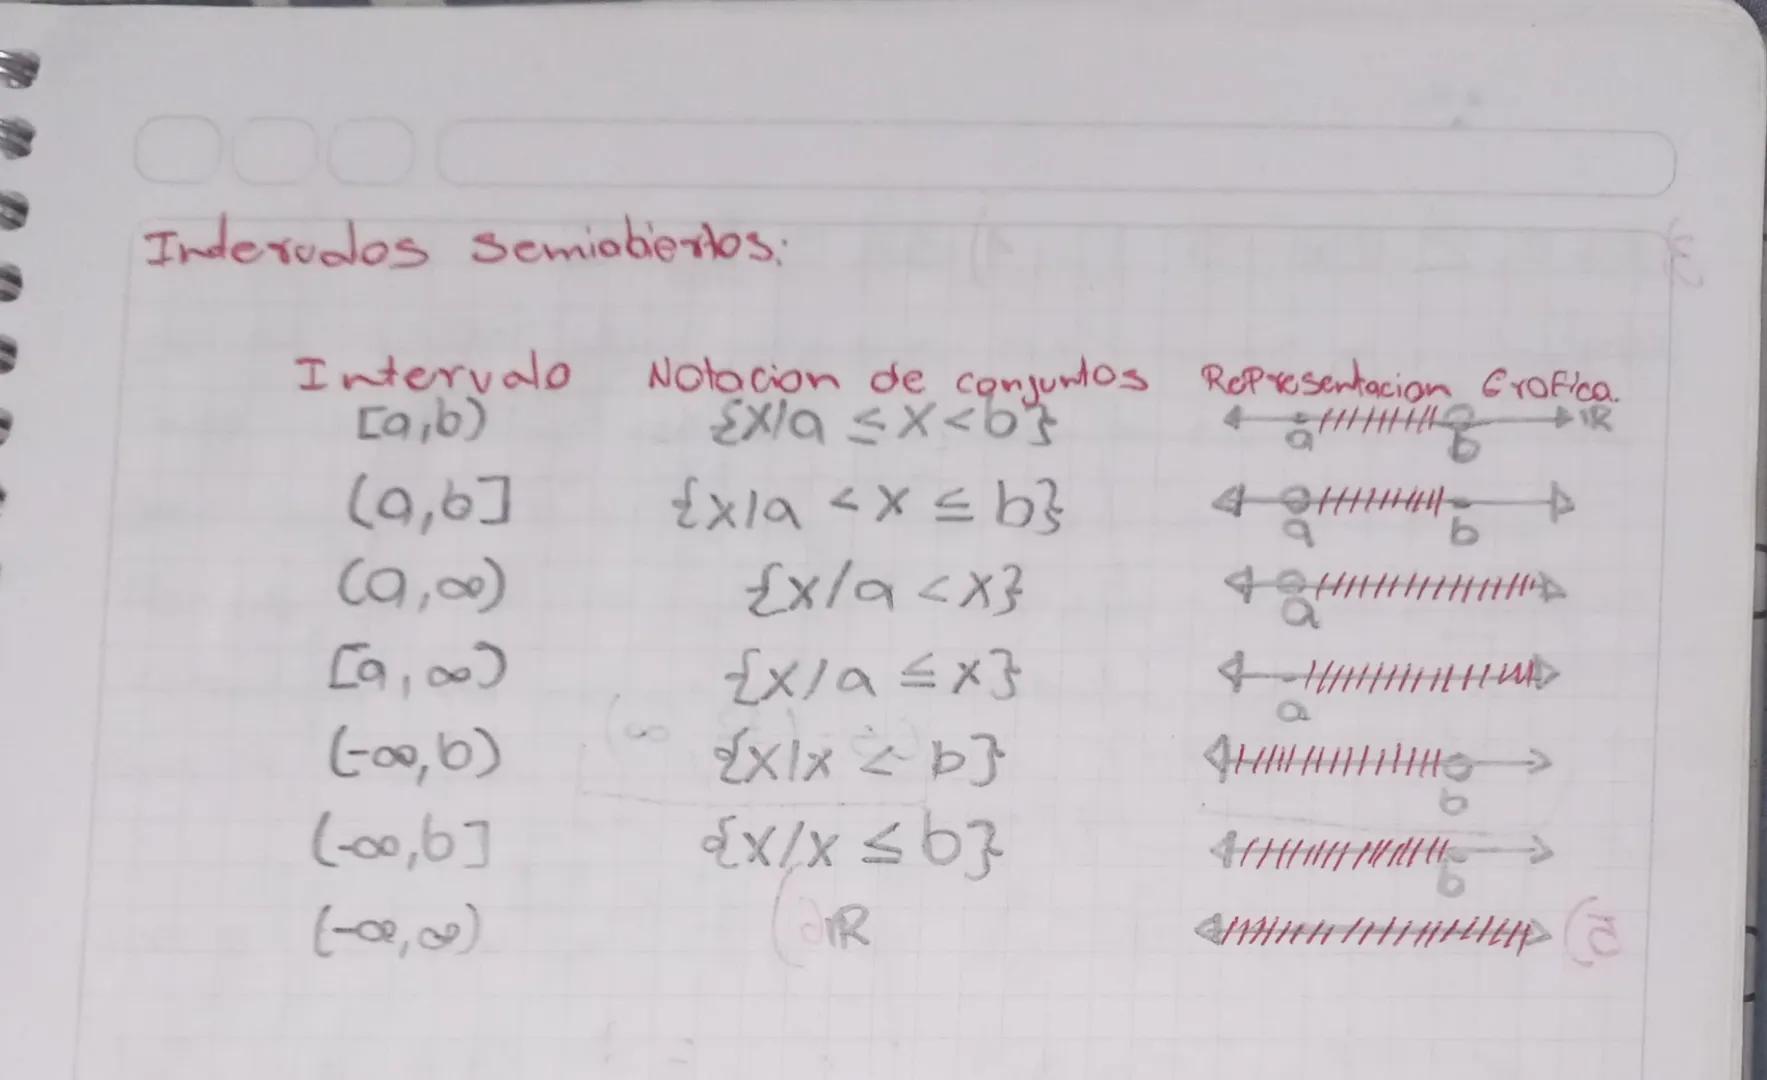 Intervalos semiabiertos:
Intervalo Notacion de conjuntos Representacion Grafica.
[a,b) {x/a ≤ x < b} a b ℝ
(a,b] {x/a < x ≤ b} a b
(a,∞) {x/a < x} a
[a,∞) {x/a ≤ x} a
(-∞,b) {x/x < b} b
(-∞,b] {x/x ≤ b} b
(-∞,∞) ℝ